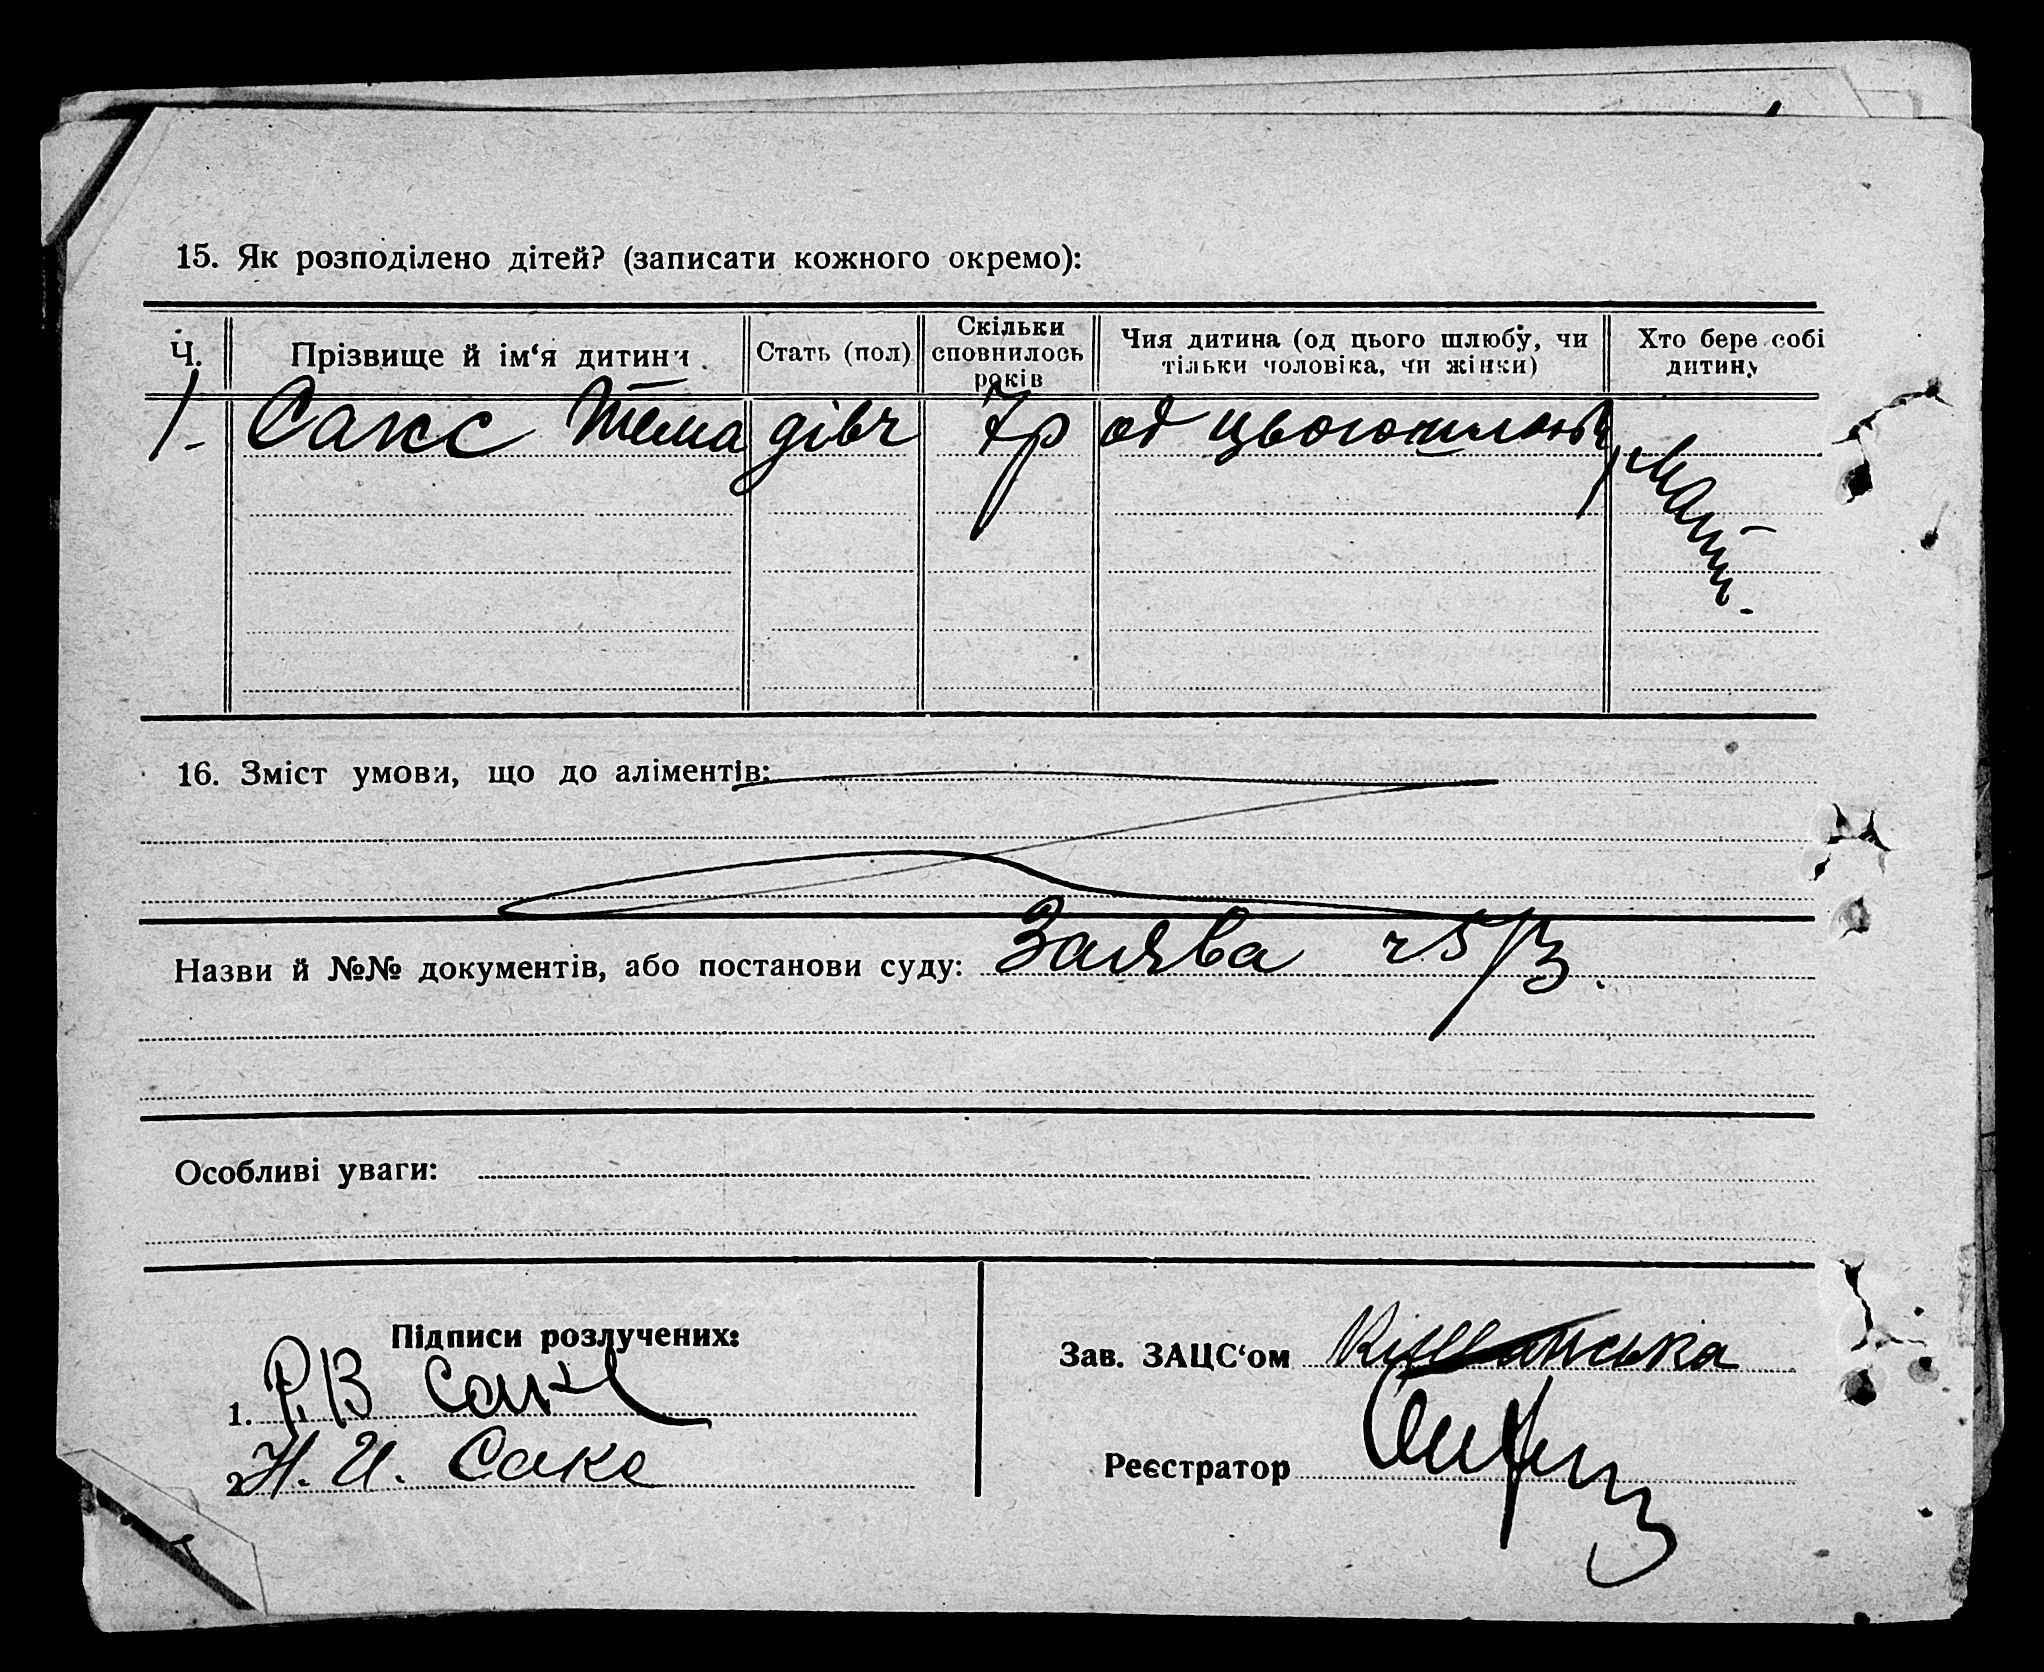 15. Як розподілено дітей? (записати кожного окремо):
Ч. Прізвище й ім‘я дитини Стать (пол) Скільки сповнилось років Чия дитина (од цього шлюбу, чи тільки чоловіка, чи жінки) Хто бере собі дитину
1. Сакс Тема дівч 7р од цього шлюбу мати.
16. Зміст умови, що до аліментів:
Назви й №№ документів, або постанови суду: Заява
Особливі уваги:
Підписи розлучених:
1. Р. В Сакс
2. Н. И. Сакс
Зав. ЗАЦС‘ом
Реєстратор